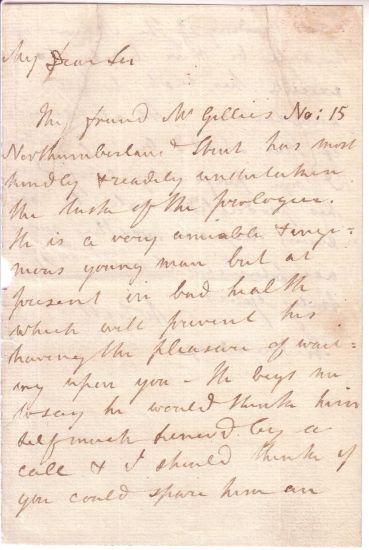 My Dear Sir
My friend Mr Gillies No: 15
Northumberland Street has most
kindly & readily undertaken
the task of the prologue.
He is a very amiable & inge=
nious young man but at
present in bad health
which will prevent his
having the pleasure of wait=
ing upon you - He begs me
to say he would think him
self much honord by a
call & I should think if
you could spare him an